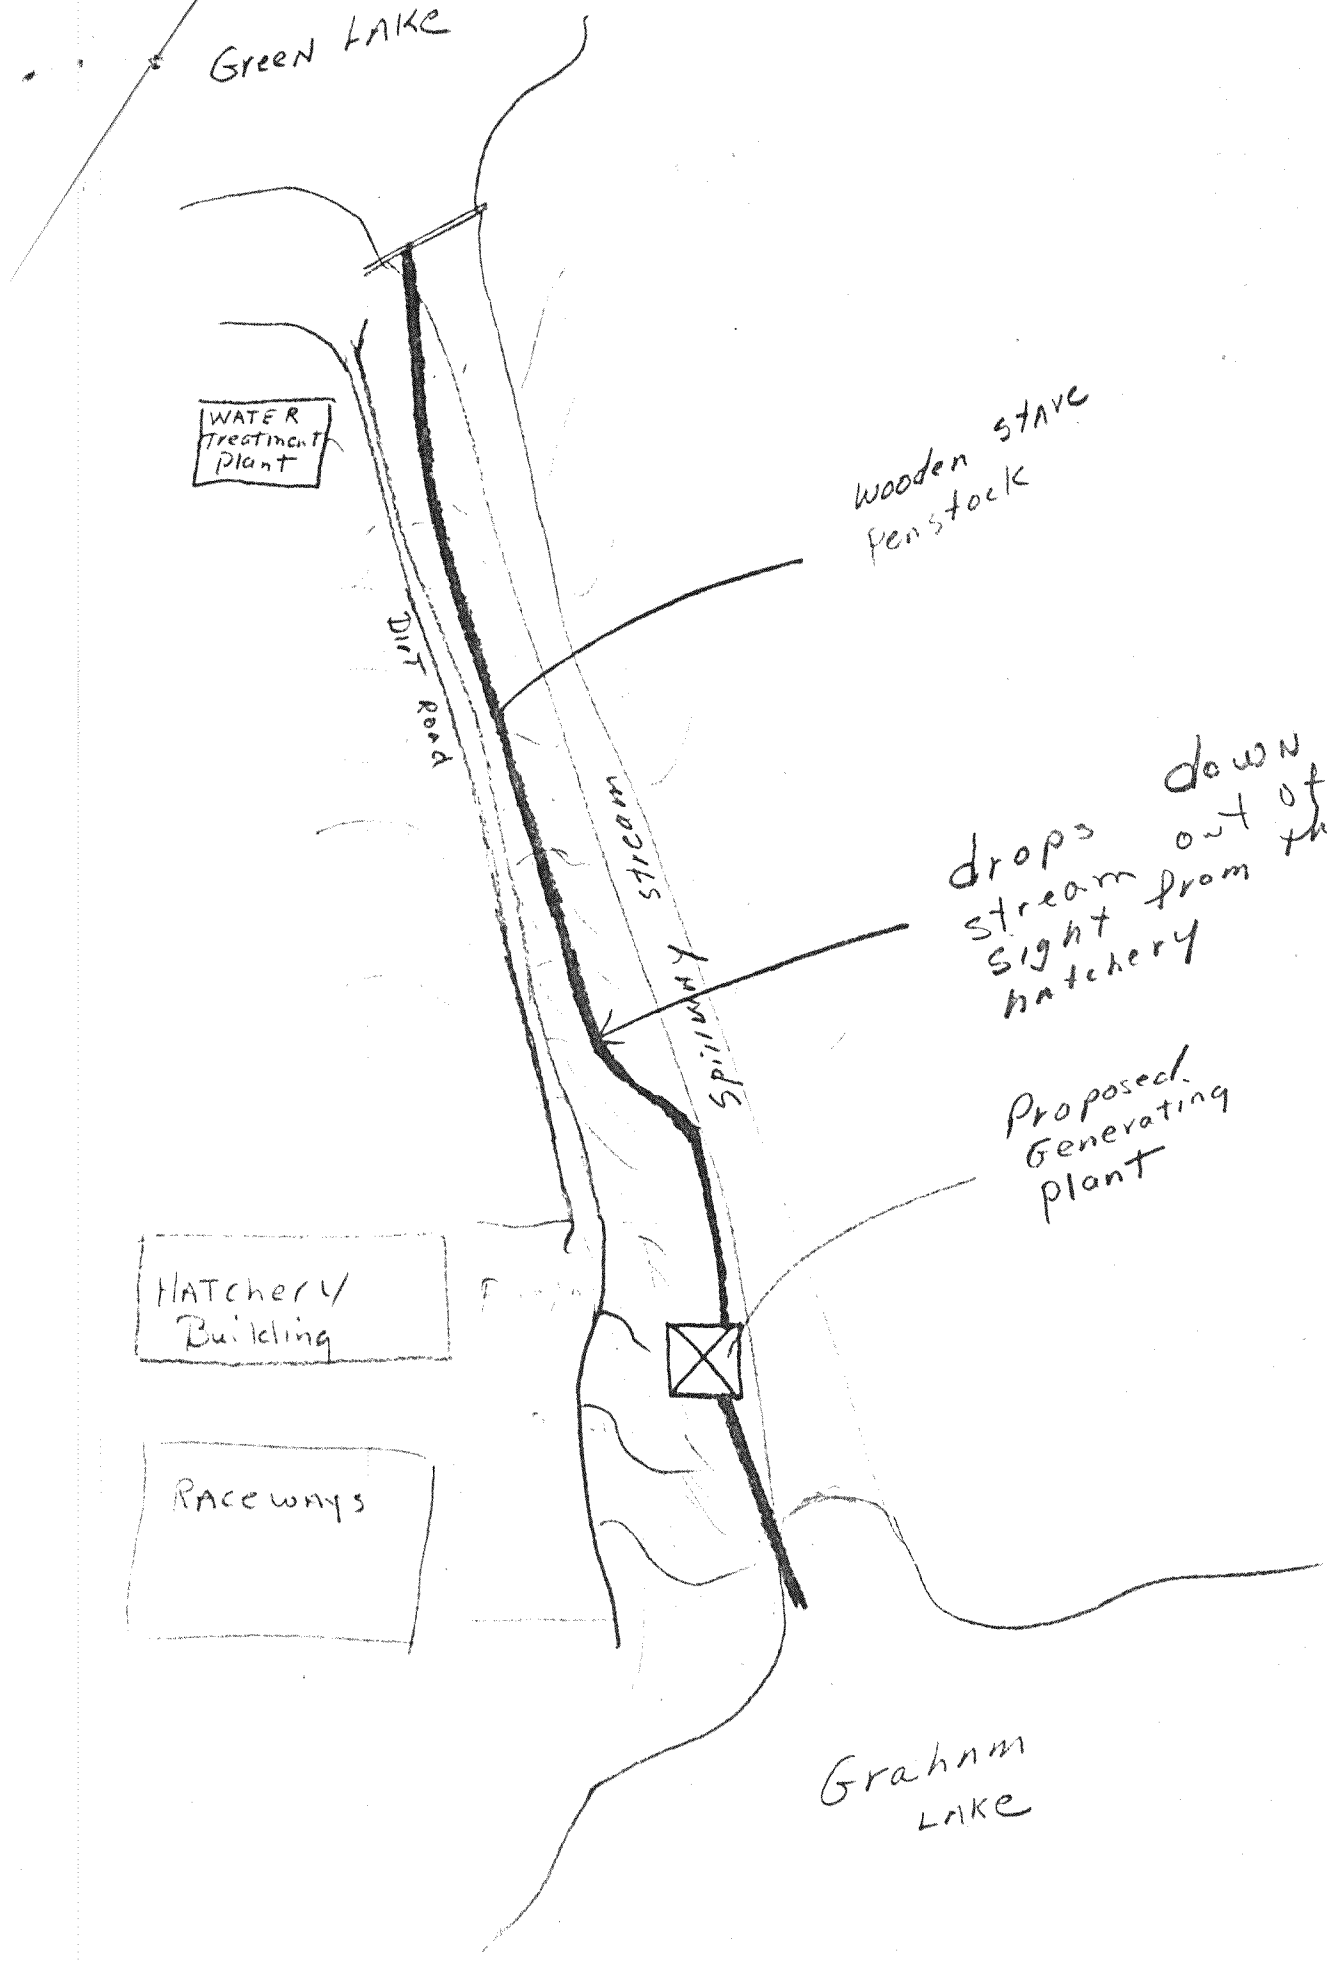 Green LAKe
WATER
Treatment
plant
wooden stave
Penstock
Dirt Road
stream
down
drops out of
stream
sight from th
hatchery
Spillway
Proposed
Generating
plant
HATchery
Building
RAceways
Graham
LAKe